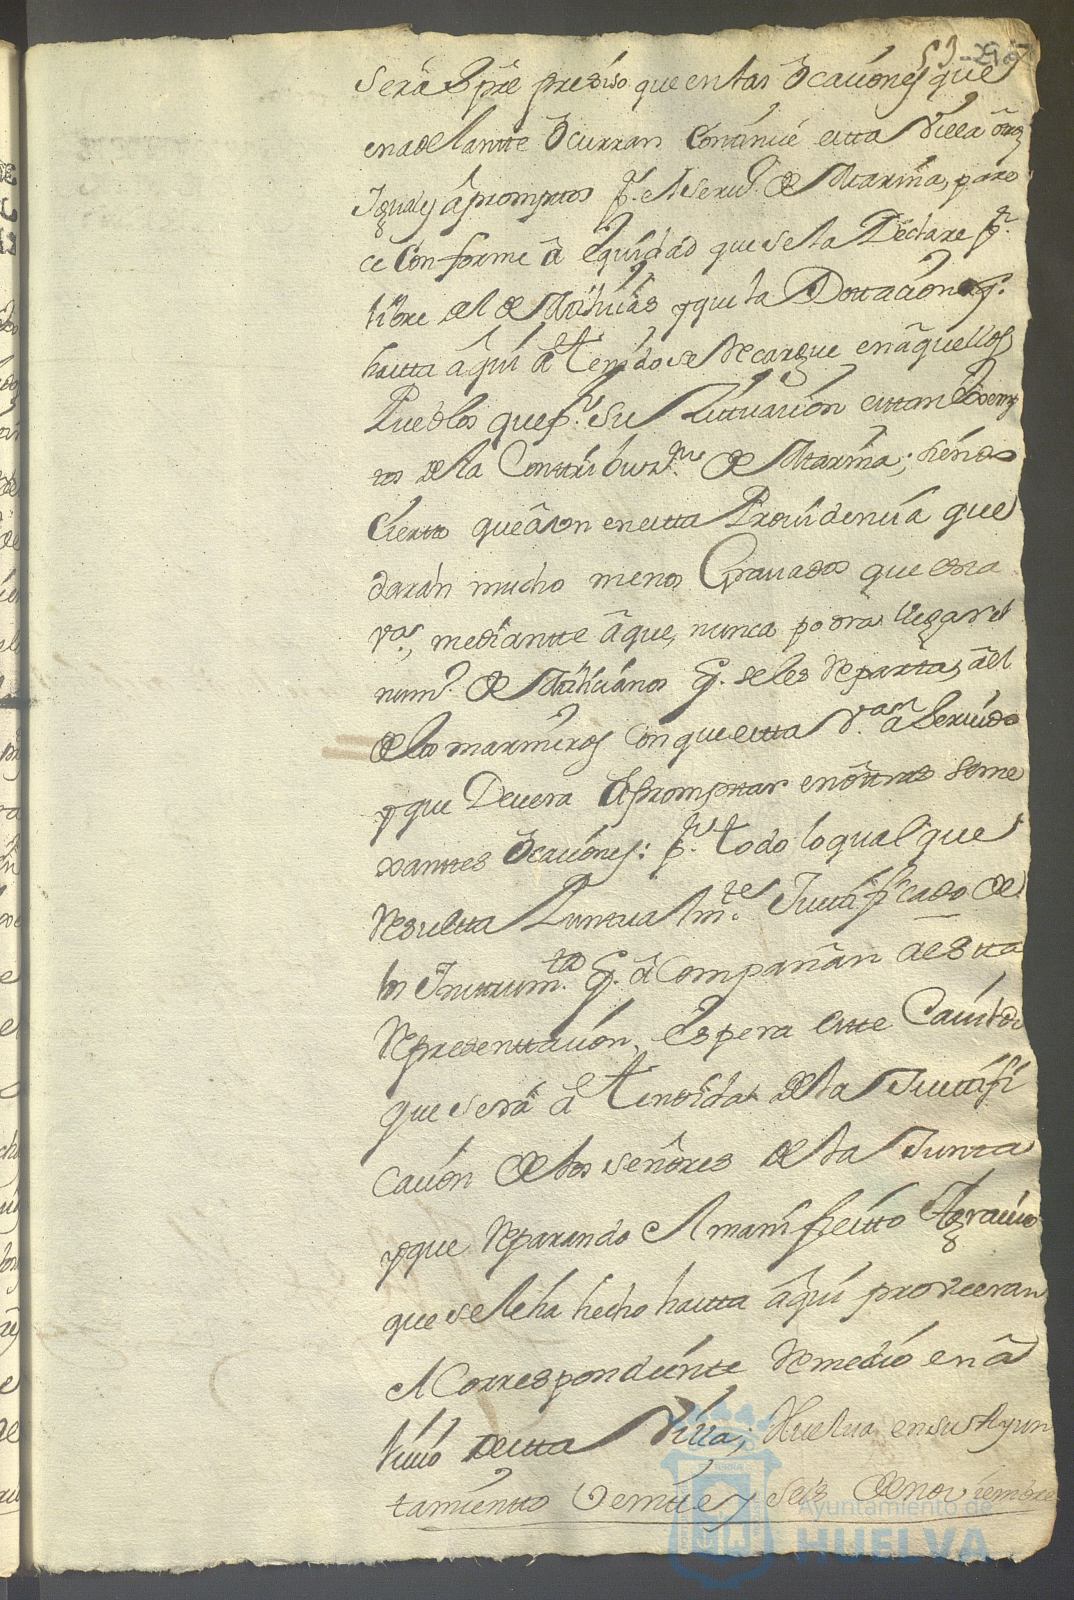 53
será Spre presiso que en tas Ocaciones que
en adelantte Ocurran Continúe estta Villa con
Iguals âprompttos p.r el servi.o de Marina, pare
ce Conforme â Equidad que se la Declare p.r
libre del de Milicias y que la Dottacion q.
hastta âqui â tenido se Recargue en âquellos
Pueblos que p.r su situacion esttan Esemp
tos de la Conttribuz.on de Marina; siendo
Ciertto que âson en estta Providencia que
darán mucho menos Gravados que esta
V.a, mediantte âque, nunca podrá llegar el
num.o de Milicianos q. se les Reparta, âel
de los marineros con que estta V.a â Servido
y que Devera âpromptar en ôttras seme
xanttes Ocaciones: p.r todo lo qual que
Resultta Punttualm.te Justtificado de
los Insttrum.tos q. âCompañan âestta
Representtacion, Espera estte Cavildo
que será âTendida de la Justtifi
cacion de los señores de la Juntta
y que Reparando el manifiestto Agravio
que se le ha hecho hastta âqui proveeran
el Correspondientte Remedio en â
livio de estta Villa; Huelva en su Ayun
tamientto Veintte y seis de noviembre
Ayuntamiento de
HUELVA